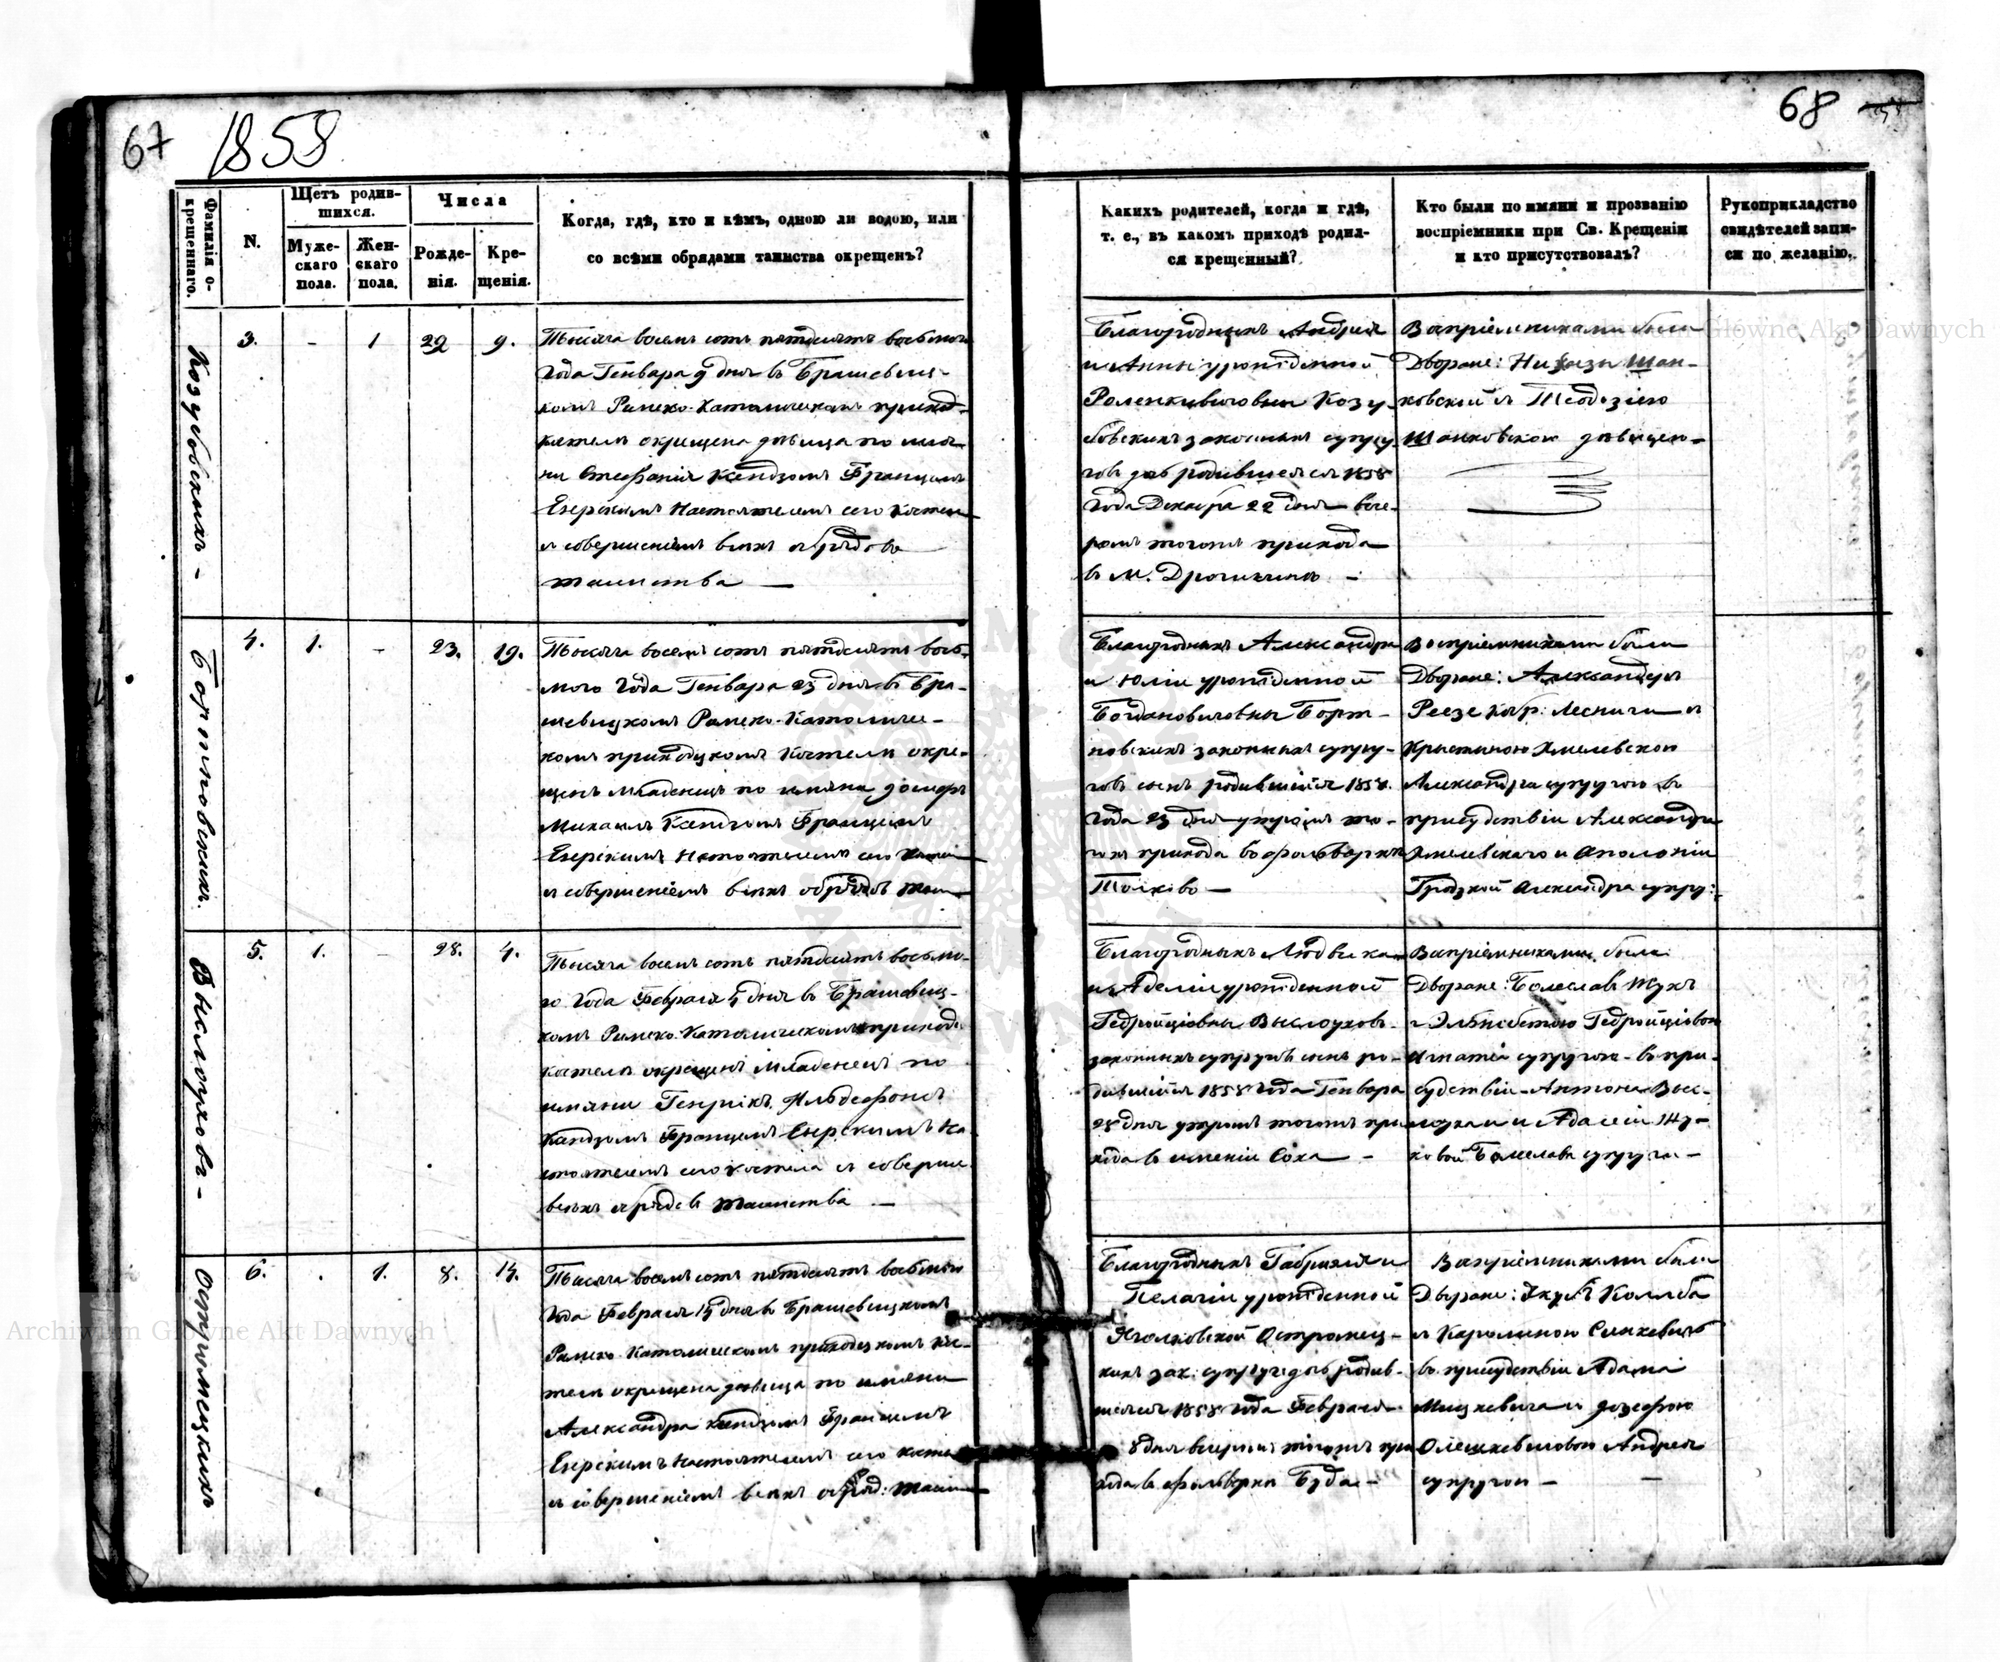 67
1858
68
Фамилія о-
крещеннаго.
N.
Щетъ родив-
шихся.
Муже-
скаго
пола.
Жен-
скаго
пола.
Числа
Рожде-
нія.
Кре-
щенія.
Когда, гдѣ, кто и кѣмъ, одною ли водою, или
со всѣми обрядами таинства окрещенъ?
Какихъ родителей, когда и гдѣ,
т. е., въ какомъ приходѣ родил-
ся крещенный?
Кто были по имяни и прозванію
воспріемники при Св. Крещеніи
и кто присутствовалъ?
Рукоприкладство
свидѣтелей запи-
си по желанію.
Козубовскихъ -
3.
-
1
22
9.
Тысяча восемь сотъ пятдесятъ восьмого
года Генвара 9 дня въ Брашевиц-
комъ Римско-Католическомъ приход-
костелѣ окрещена дѣвица по имя-
ни Стефанія Ксендзомъ Францомъ
Езерскимъ Настоятелемъ сего костела
съ совершеніемъ всѣхъ обрядовъ
таинства —
Благородныхъ Андрея
и Анны урожденной
Козу-
бовскихъ законныхъ супру-
говъ дочь родившеяся 1858
года Декабра 22 дня вече-
ромъ тогожъ прихода
въ М. Дрогичинѣ -
Воспріемниками были
Дворане: Шан-
ковскій съ Теодозіею
Шанковскою дѣвицею -
Бортновскихъ.
4.
1.
-
23.
19.
Тысяча восемь сотъ пятдесятъ вось-
мого года Генвара 23 дня въ Бра-
шевицкомъ Римско-Католиче-
комъ приходскомъ костелѣ окре-
щенъ младенецъ по имяни Іосифъ
Михаилъ Ксендзомъ Францомъ
Езерскимъ Настоятелемъ сего костела
съ совершеніемъ всѣхъ обрядовъ таин
Благородныхъ Александра
и Юліи урожденной
Богдановичовны Борт-
новскихъ законныхъ супру-
говъ сынъ родившійся 1858.
года 23 дня утромъ то-
гожъ прихода во фольваркѣ
—
Воспріемниками были
Дворане: Александръ
Лесничи съ
Крыстиною Хмелевскою
Александра супругою въ
присудствіи Александра
Хмелевскаго и Аполоніи
Гродзкой Александра супру:
Вислоуховъ -
5.
1.
-
28.
4.
Тысяча восемь сотъ пятдесятъ восьмо-
го года Февраля 4 дня въ Брашевиц-
комъ Римско-Католическомъ приход:
костелѣ окрещенъ младенецъ по
имяни Генрикъ Ильдефонсъ
Ксендзомъ Францомъ Езерскимъ На-
стоятелемъ сего костела съ соверше
всѣхъ обрядовъ таинства —
Благородныхъ Людвика
и Аделіи урожденной
Гедройціовны Вислоуховъ
законныхъ супруговъ сынъ ро-
дившійся 1858 года Генвара
28 дня утромъ тогожъ при
хода въ имѣніи Соха -
Воспріемниками были
Дворане: Болеславъ Жукъ
съ Эльжбетою Гедройціовою
Игнатія супругою - въ при-
судствіи - Антона Вис-
лоуха и и Адасеіи Жу-
ковой Болеслава супруги -
Остромецкихъ
6.
.
1.
8.
14.
Тысяча восемь сотъ пятдесятъ восьмого
года Февраля 14 дня въ Брашевицкомъ
Римско-Католическомъ приходскомъ кос-
телѣ окрещена дѣвица по имяни
Александра Ксендзомъ Францомъ
Езерскимъ Настоятелемъ сего косте
съ совершеніемъ всѣхъ обряд: таин
Благородныхъ Габріеля и
Пелагіи урожденной
Яголковской Остромец-
кихъ зак: супруг дочь родив-
шеяся 1858 года Февраля
8 дня вечеромъ тогожъ при
хода въ фольверкѣ Буда -
Воспріемниками были
Дворане: Якубъ Коллба
съ Каролиною Синкевичъ
въ присудствіи Адама
Мицкевича и Іозефою
Олешкевичовою Андрея
супругою -